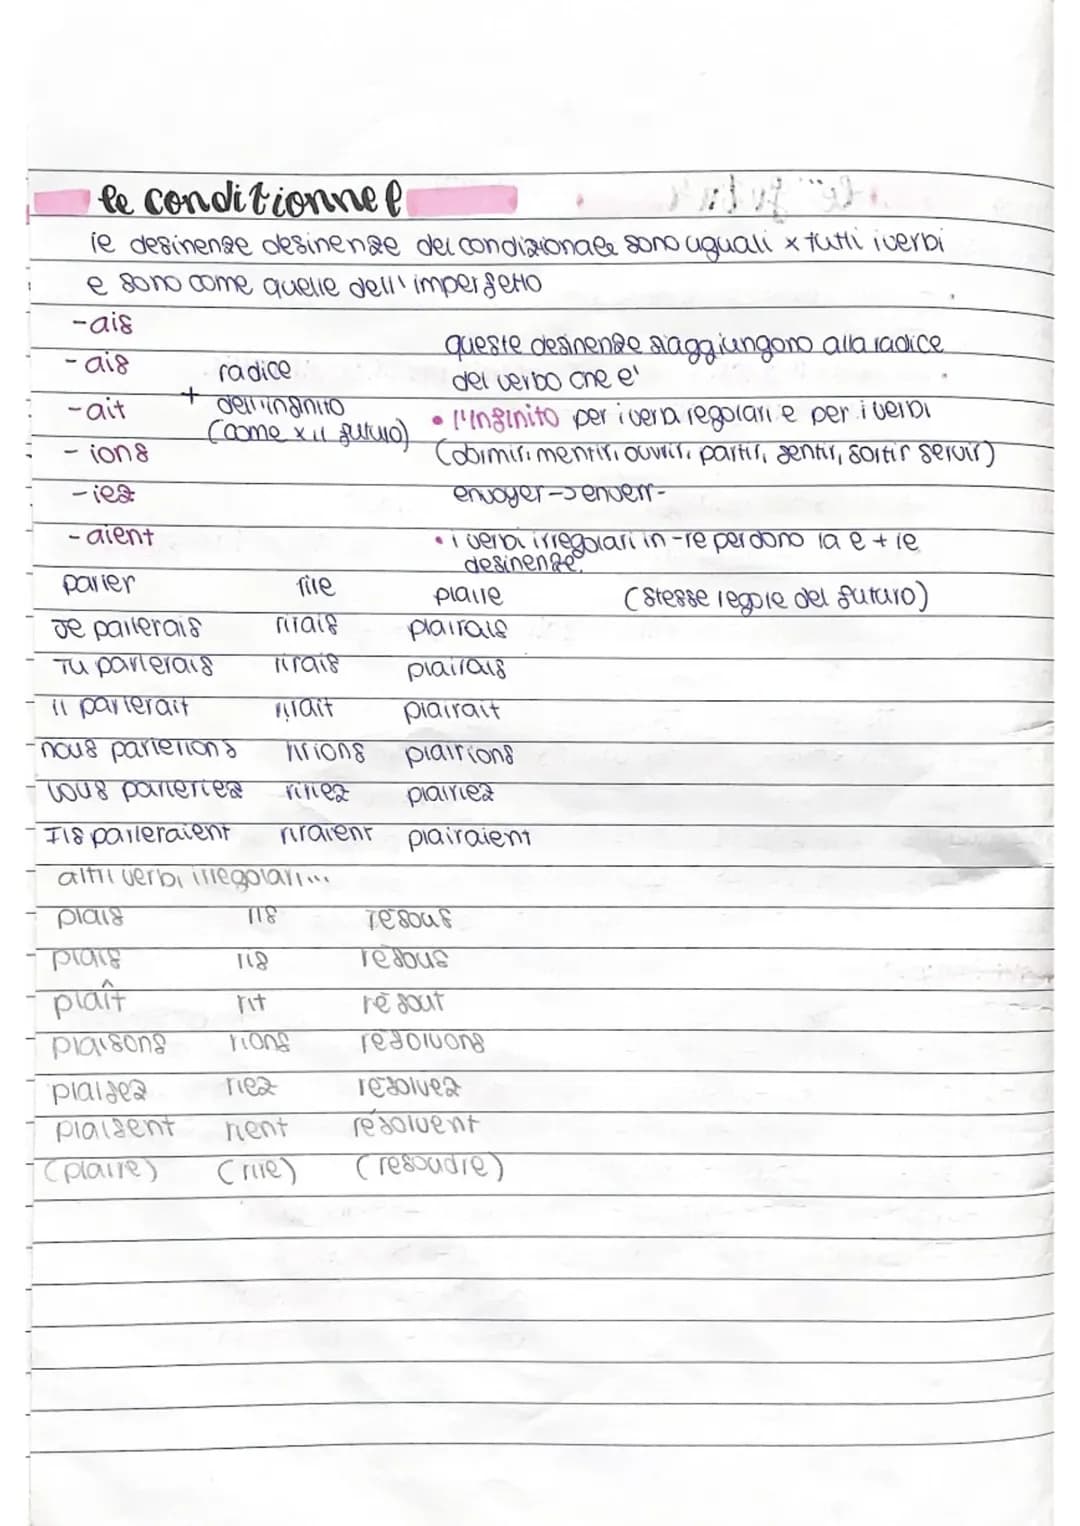 le conditionnel
le desinenze desinenze del condizionale sono uguali x tutti i verbi
e sono come quelle dell'imperfetto
-ais
-ais
-ait
-ions
-iez
-aient
+ radice
dell'infinito
(come x il futuro)
queste desinenze si aggiungono alla radice
del verbo che e'
• l'infinito per i verbi regolari e per i verbi
(dormir, mentir, ouvrir, partir, sentir, sortir servir)
envoyer -> enverr-
• i verbi irregolari in -re perdono la e + le
desinenze.
(stesse regole del futuro)
parler rire plaire
Je parlerais rirais plairais
Tu parlerais rirais plairais
il parlerait rirait plairait
nous parlerions ririons plairions
vous parleriez ririez plairiez
Ils parleraient riraient plairaient
altri verbi irregolari...
plais ris résous
plais ris résous
plaît rit résout
plaisons rions résolvons
plaisez riez résolvez
plaisent rient résolvent
(plaire) (rire) (resoudre)